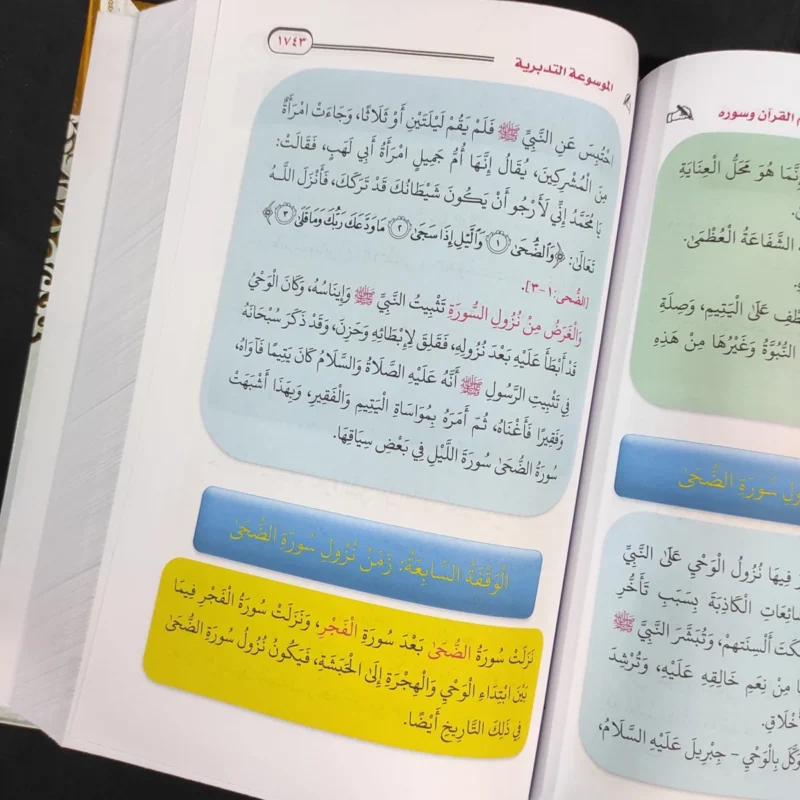 م القرآن وسوره
نَّمَا هُوَ مَحَلُّ الْعِنَايَةِ
ةُ الشَّفَاعَةُ الْعُظْمَىٰ.
طْفِ عَلَىٰ الْيَتِيمِ، وَصِلَةِ
النُّبُوَّةُ وَغَيْرُهَا مِنْ هَذِهِ
ولِ سُورَةِ الضُّحَىٰ
رَ فِيهَا نُزُولُ الْوَحْيِ عَلَىٰ النَّبِيِّ
ائِعَاتِ الْكَاذِبَةَ بِسَبَبِ تَأَخُّرِ
كَتَ أَلْسِنَتَهُمْ، وَتُبَشِّرَ النَّبِيَّ ﷺ
ا مِنْ نِعَمِ خَالِقِهِ عَلَيْهِ، وَتُرْشِدَ
أَخْلَاقِ.
وَكَّلُ بِالْوَحْيِ - جِبْرِيلَ عَلَيْهِ السَّلَامُ،
الموسوعة التدبرية
١٧٤٣
احْتُبِسَ عَنِ النَّبِيِّ ﷺ فَلَمْ يَقُمْ لَيْلَتَيْنِ أَوْ ثَلَاثًا، وَجَاءَتْ امْرَأَةٌ
مِنَ الْمُشْرِكِينَ، يُقَالُ إِنَّهَا أُمُّ جَمِيلٍ امْرَأَةُ أَبِي لَهَبٍ، فَقَالَتْ:
يَا مُحَمَّدُ إِنِّي لَأَرْجُو أَنْ يَكُونَ شَيْطَانُكَ قَدْ تَرَكَكَ، فَأَنْزَلَ اللَّهُ
تَعَالَىٰ: ﴿وَٱلضُّحَىٰ ۝١ وَٱلَّيْلِ إِذَا سَجَىٰ ۝٢ مَا وَدَّعَكَ رَبُّكَ وَمَا قَلَىٰ ۝٣﴾
[الضُّحَى: ١-٣].
وَالْغَرَضُ مِنْ نُزُولِ السُّورَةِ تَثْبِيتُ النَّبِيِّ ﷺ وَإِينَاسُهُ، وَكَانَ الْوَحْيُ
قَدْ أَبْطَأَ عَلَيْهِ بَعْدَ نُزُولِهِ، فَقَلِقَ لِإِبْطَائِهِ وَحَزِنَ، وَقَدْ ذَكَرَ سُبْحَانَهُ
فِي تَثْبِيتِ الرَّسُولِ ﷺ أَنَّهُ عَلَيْهِ الصَّلَاةُ وَالسَّلَامُ كَانَ يَتِيمًا فَآوَاهُ،
وَفَقِيرًا فَأَغْنَاهُ، ثُمَّ أَمَرَهُ بِمُوَاسَاةِ الْيَتِيمِ وَالْفَقِيرِ، وَبِهَذَا أَشْبَهَتْ
سُورَةُ الضُّحَىٰ سُورَةَ اللَّيْلِ فِي بَعْضِ سِيَاقِهَا.
الْوَقْفَةُ السَّابِعَةُ: زَمَنُ نُزُولِ سُورَةِ الضُّحَىٰ
نَزَلَتْ سُورَةُ الضُّحَىٰ بَعْدَ سُورَةِ الْفَجْرِ، وَنَزَلَتْ سُورَةُ الْفَجْرِ فِيمَا
بَيْنَ ابْتِدَاءِ الْوَحْيِ وَالْهِجْرَةِ إِلَىٰ الْحَبَشَةِ، فَيَكُونُ نُزُولُ سُورَةِ الضُّحَىٰ
فِي ذَلِكَ التَّارِيخِ أَيْضًا.